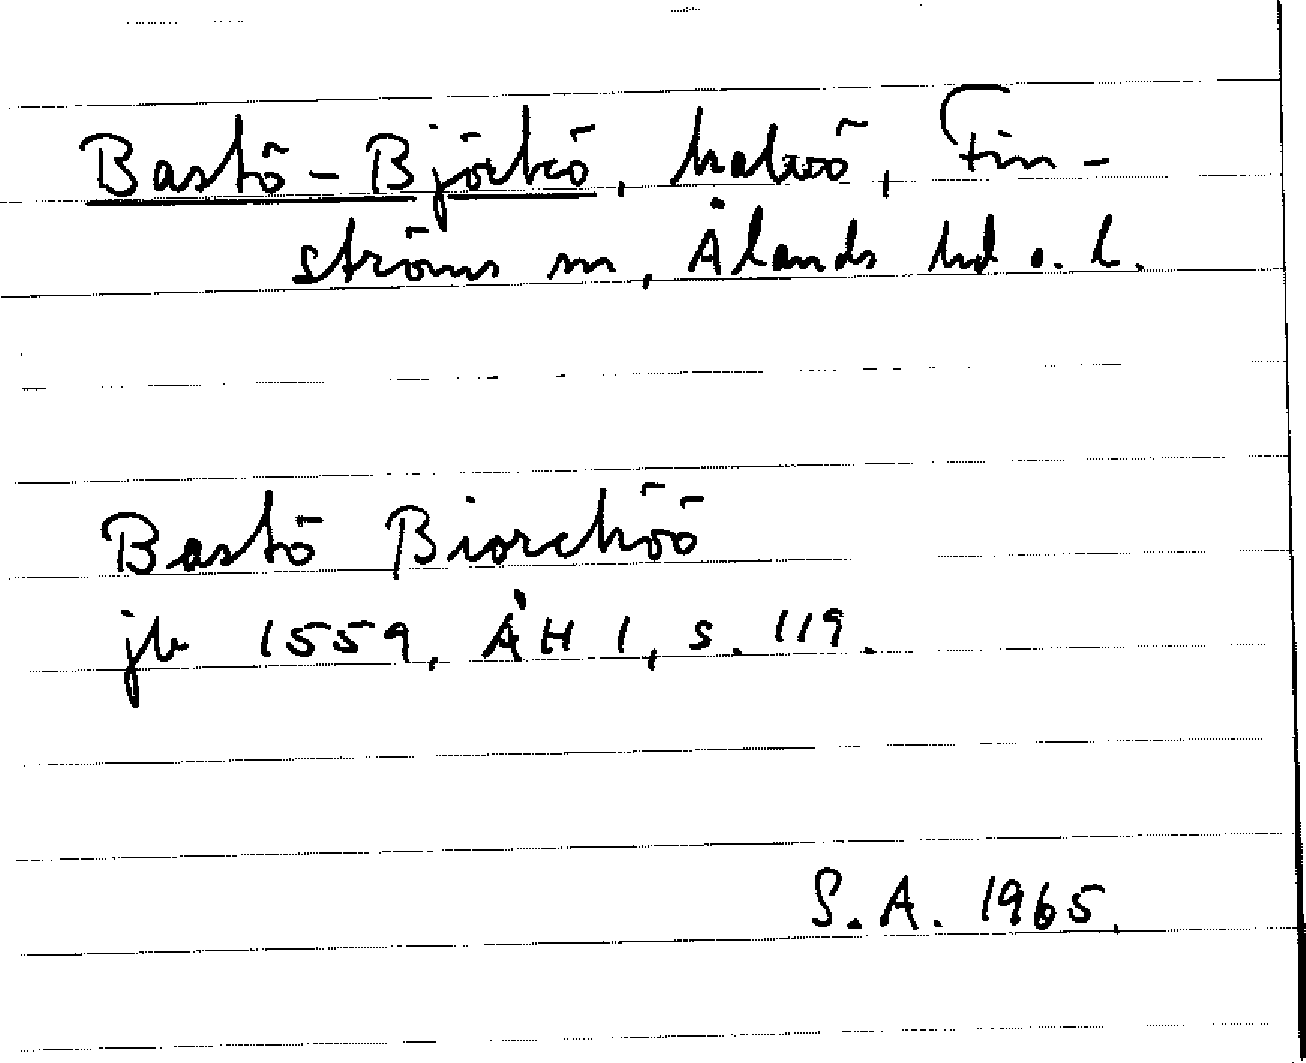 Bastö-Björkö, halvö, Fin-
ströms sn, Ålands hd o. l.
Bastö Biorchöö
jb 1559, ÅH 1, s. 119.
S.A. 1965.